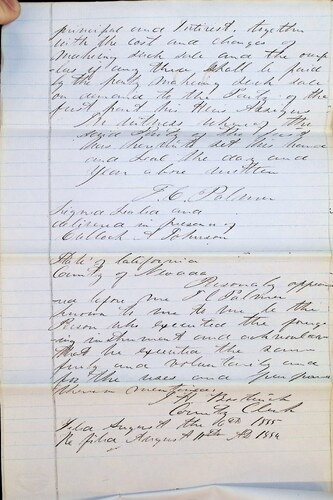 principal and Interest, together
with the cost and charges of
making such sale and the surp
lus if any there shall be paid
by the party making such sale
on demand to the Party of the
first part his Heirs Assigns
In witness whereof the
said Party of the first
has hereunto set his hand
and seal the day and
year above written
T. C. Palmer
Signed Sealed and
delivered in presence of
A Johnson
State of California
County of Nevada
Personally appea
red before me T C Palmer
known to me to be the
Person who executed the forego
ing instrument and acknowled
that he executed the same
freely and voluntarily and
for the uses and purposes
therein mentioned
County Clerk
Filed August the 16th 1855
Re filed August 11th AD 1854